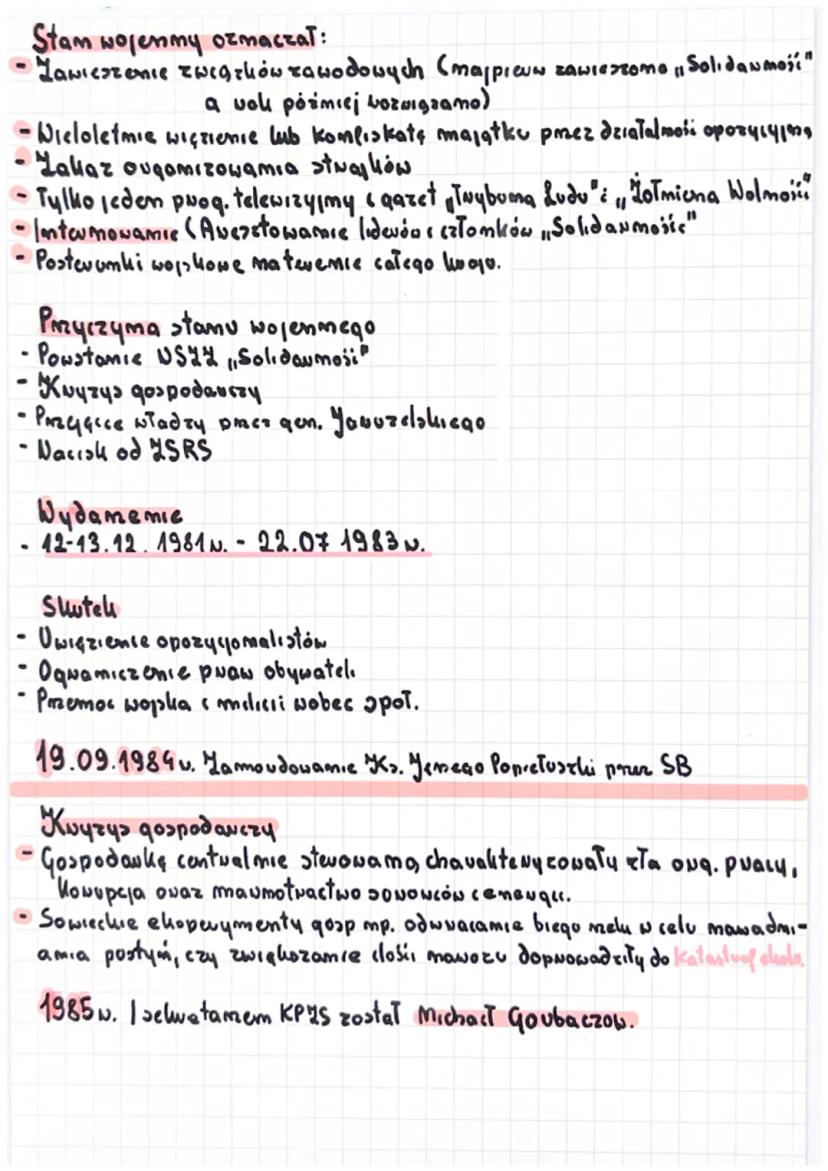 Stan wojenny oznaczał:
- Zawieszenie związków zawodowych (najpierw zawieszono „Solidarność"
a rok później rozwiązano)
- Wieloletnie więzienie lub konfiskatę majątku przez działalność opozycyjną
- Zakaz organizowania strajków
- Tylko jeden prog. telewizyjny i gazet „Trybuna Ludu" i „Żołnierza Wolności"
- Internowanie (Aresztowanie liderów i członków „Solidarność"
- Posterunki wojskowe na terenie całego kraju.
Przyczyna stanu wojennego
- Powstanie NSZZ „Solidarność"
- Kryzys gospodarczy
- Przejęcie władzy przez gen. Jaruzelskiego
- Nacisk od ZSRS
Wydarzenie
- 12-13.12. 1981r. - 22.07 1983r.
Skutek
- Uwięzienie opozycjonalistów
- Ograniczenie praw obywateli
- Przemoc wojska i milicii wobec społ.
19.09.1984r. Zamordowanie Ks. Jerzego Popiełuszki przez SB
Kryzys gospodarczy
- Gospodarkę centralnie sterowaną charakteryzowały zła org. pracy,
korupcja oraz marnotractwo surowców i energii.
- Sowieckie eksperymenty gosp np. odwracanie biegu rzek w celu nawadni-
ania pustyń, czy zwiększanie ilości nawozu doprowadziły do katastrof ekolo.
1985r. I sekretarzem KPZS został Michaił Gorbaczow.